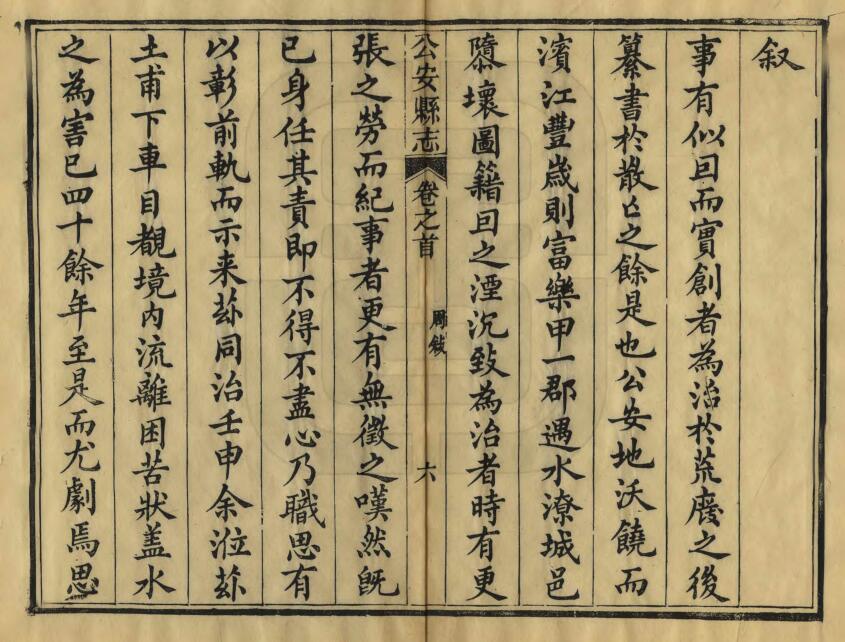 叙
事有似因而實創者為治扵荒廢之後
纂書扵散亡之餘是也公安地沃饒而
濱江豐歲則富樂甲一郡遇水潦城邑
隳壞圖籍因之湮沉致為治者時有更
公安縣志 卷之首 周敍 六
張之勞而紀事者更有無徵之嘆然既
已身任其責即不得不盡心乃職思有
以彰前軌而示来茲同治壬申余涖茲
土甫下車目覩境内流離困苦狀盖水
之為害已四十餘年至是而尤劇焉思